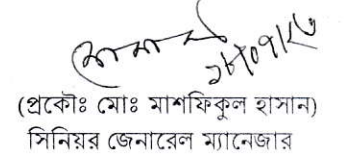 ১৮/০৭/২৩
(প্রকৌঃ মোঃ মাশফিকুল হাসান)
সিনিয়র জেনারেল ম্যানেজার